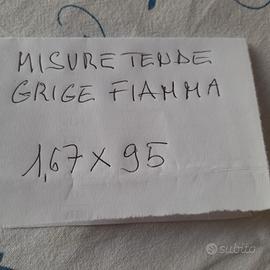 MISURE TENDE
GRIGE FIAMMA
1,67 X 95
subito